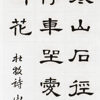 寒山石徑
停車坐愛
花
杜牧詩山